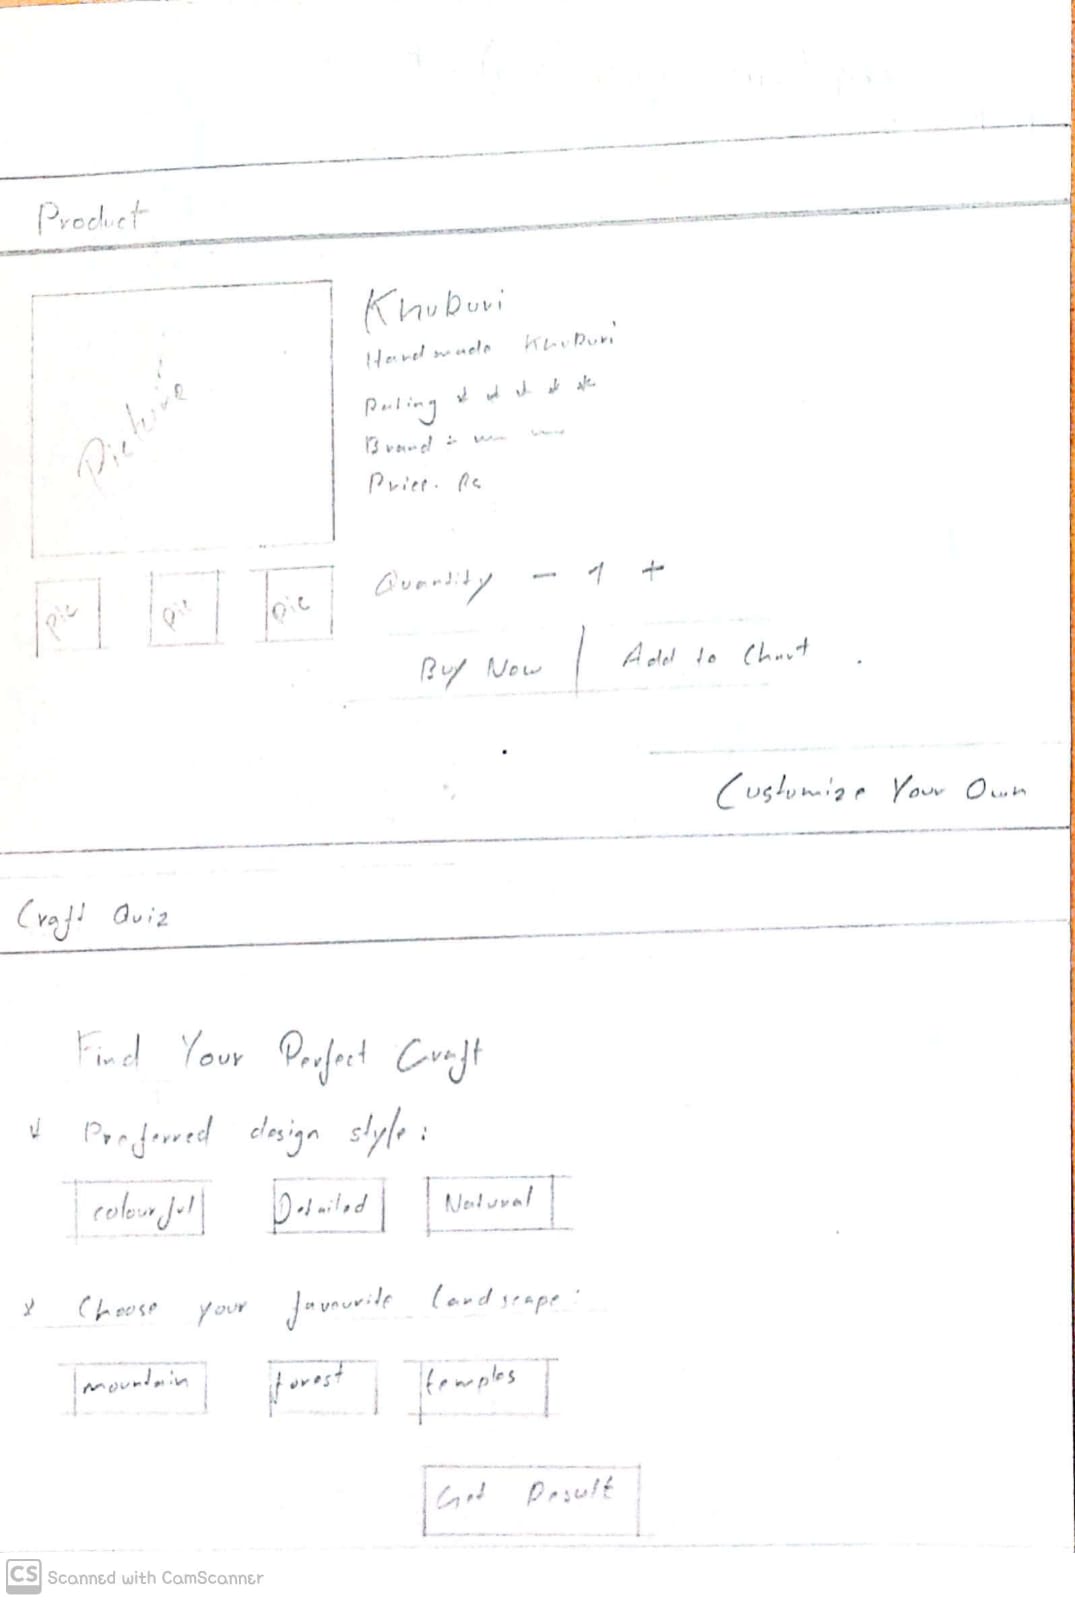 Product
Picture
Khukuri
Handmade Khukuri
Rating * * * * *
Brand :
Price. Rs
pic pic pic
Quantity - 1 +
Buy Now | Add to Chart
Customize Your Own
Craft Quiz
Find Your Perfect Craft
* Preferred design style:
colourful Detailed Natural
* Choose your favourite landscape:
mountain forest temples
Get Result
CS Scanned with CamScanner